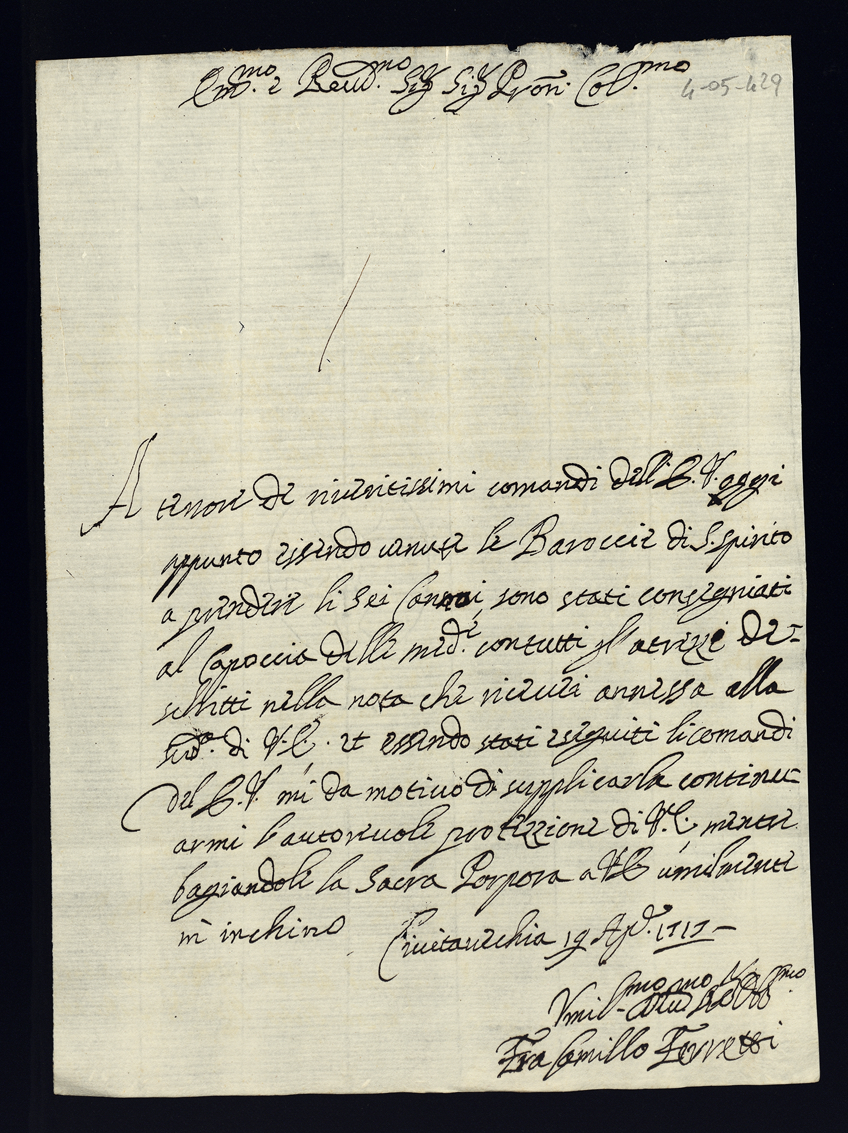 Em.mo e Reud.mo Sig Sig Pron Col.mo
4-05-429
A tenore de riueritissimi comandi dell'E.V. oggi
appunto essendo uenute le Baroccie di S. Spirito
a prendere li sei Cannoni sono stati consegniati
al Capoccia delle med.e con tutti gl'atrezzi de=
scritti nella nota che riceuei annessa alla
di V.E. et essendo stati eseguiti li comandi
del E.V. mi da motiuo di supplicarla continu=
armi l'autoreuole protezzione di V.E. mentre
bagiandole la Sacra Porpora a V.E. umilmente
m'inchino Ciuitauechia 19 Ap.e 1717
Vmil.mo
Fra Camillo Ferretti